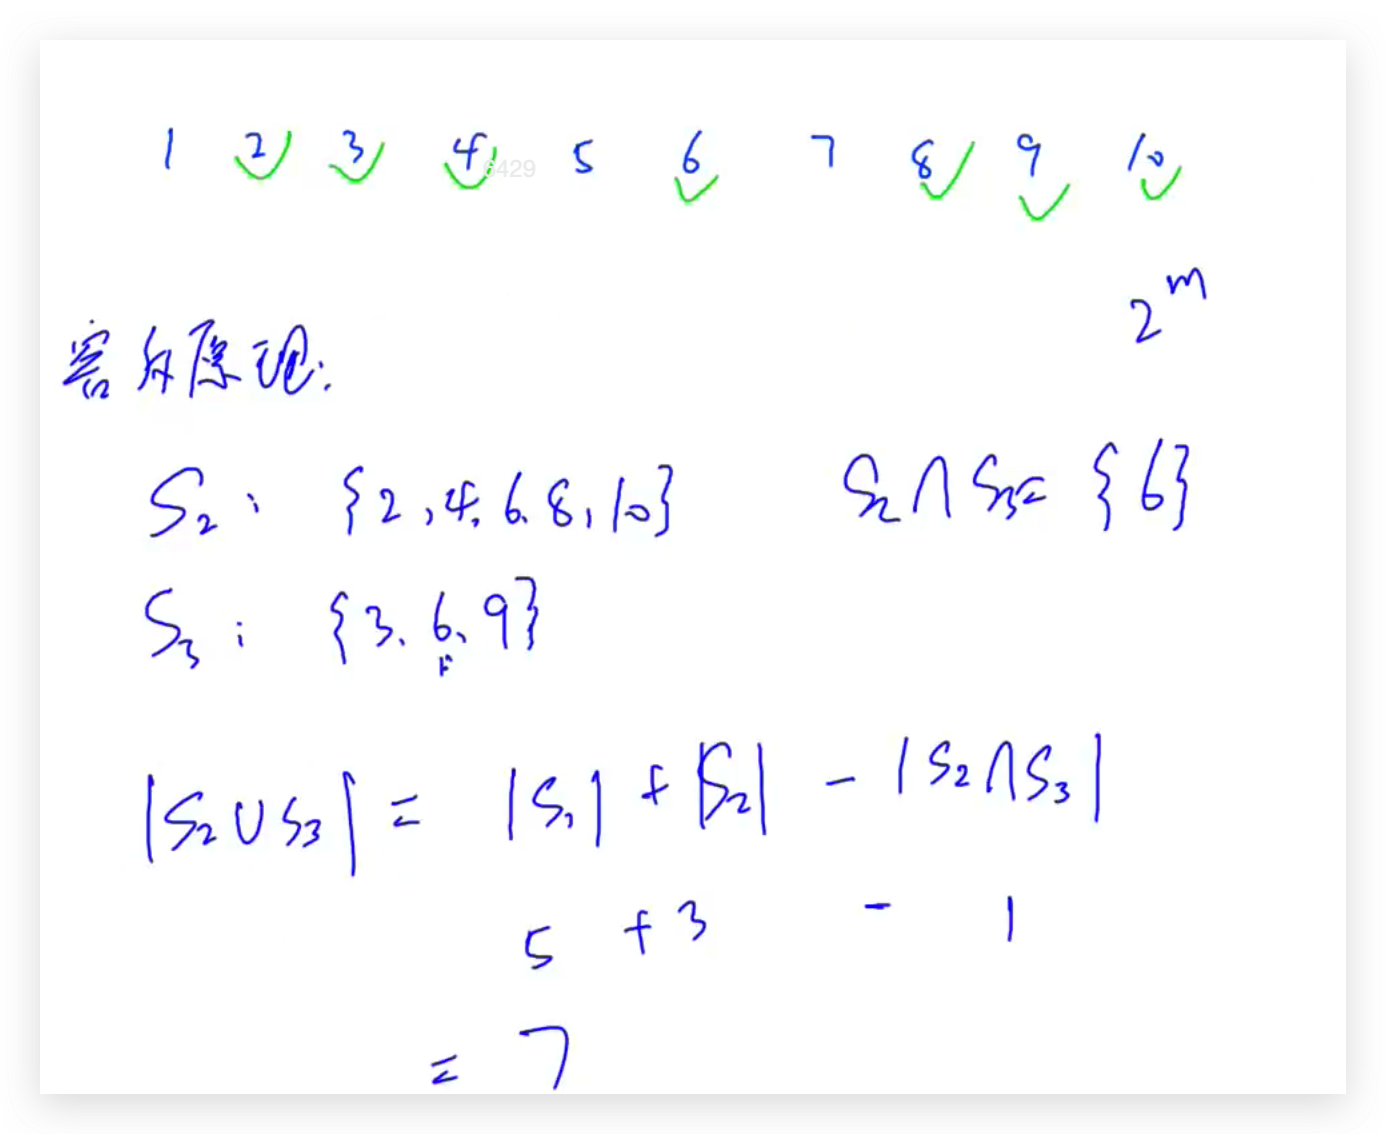 1 2 3 4 5 6 7 8 9 10
6429
2^m
容斥原理:
S₂: {2,4,6,8,10} S₂∩S₃= {6}
S₃: {3.6.9}
|S₂∪S₃| = |S₁| + |S₂| - |S₂∩S₃|
5 + 3 - 1
= 7